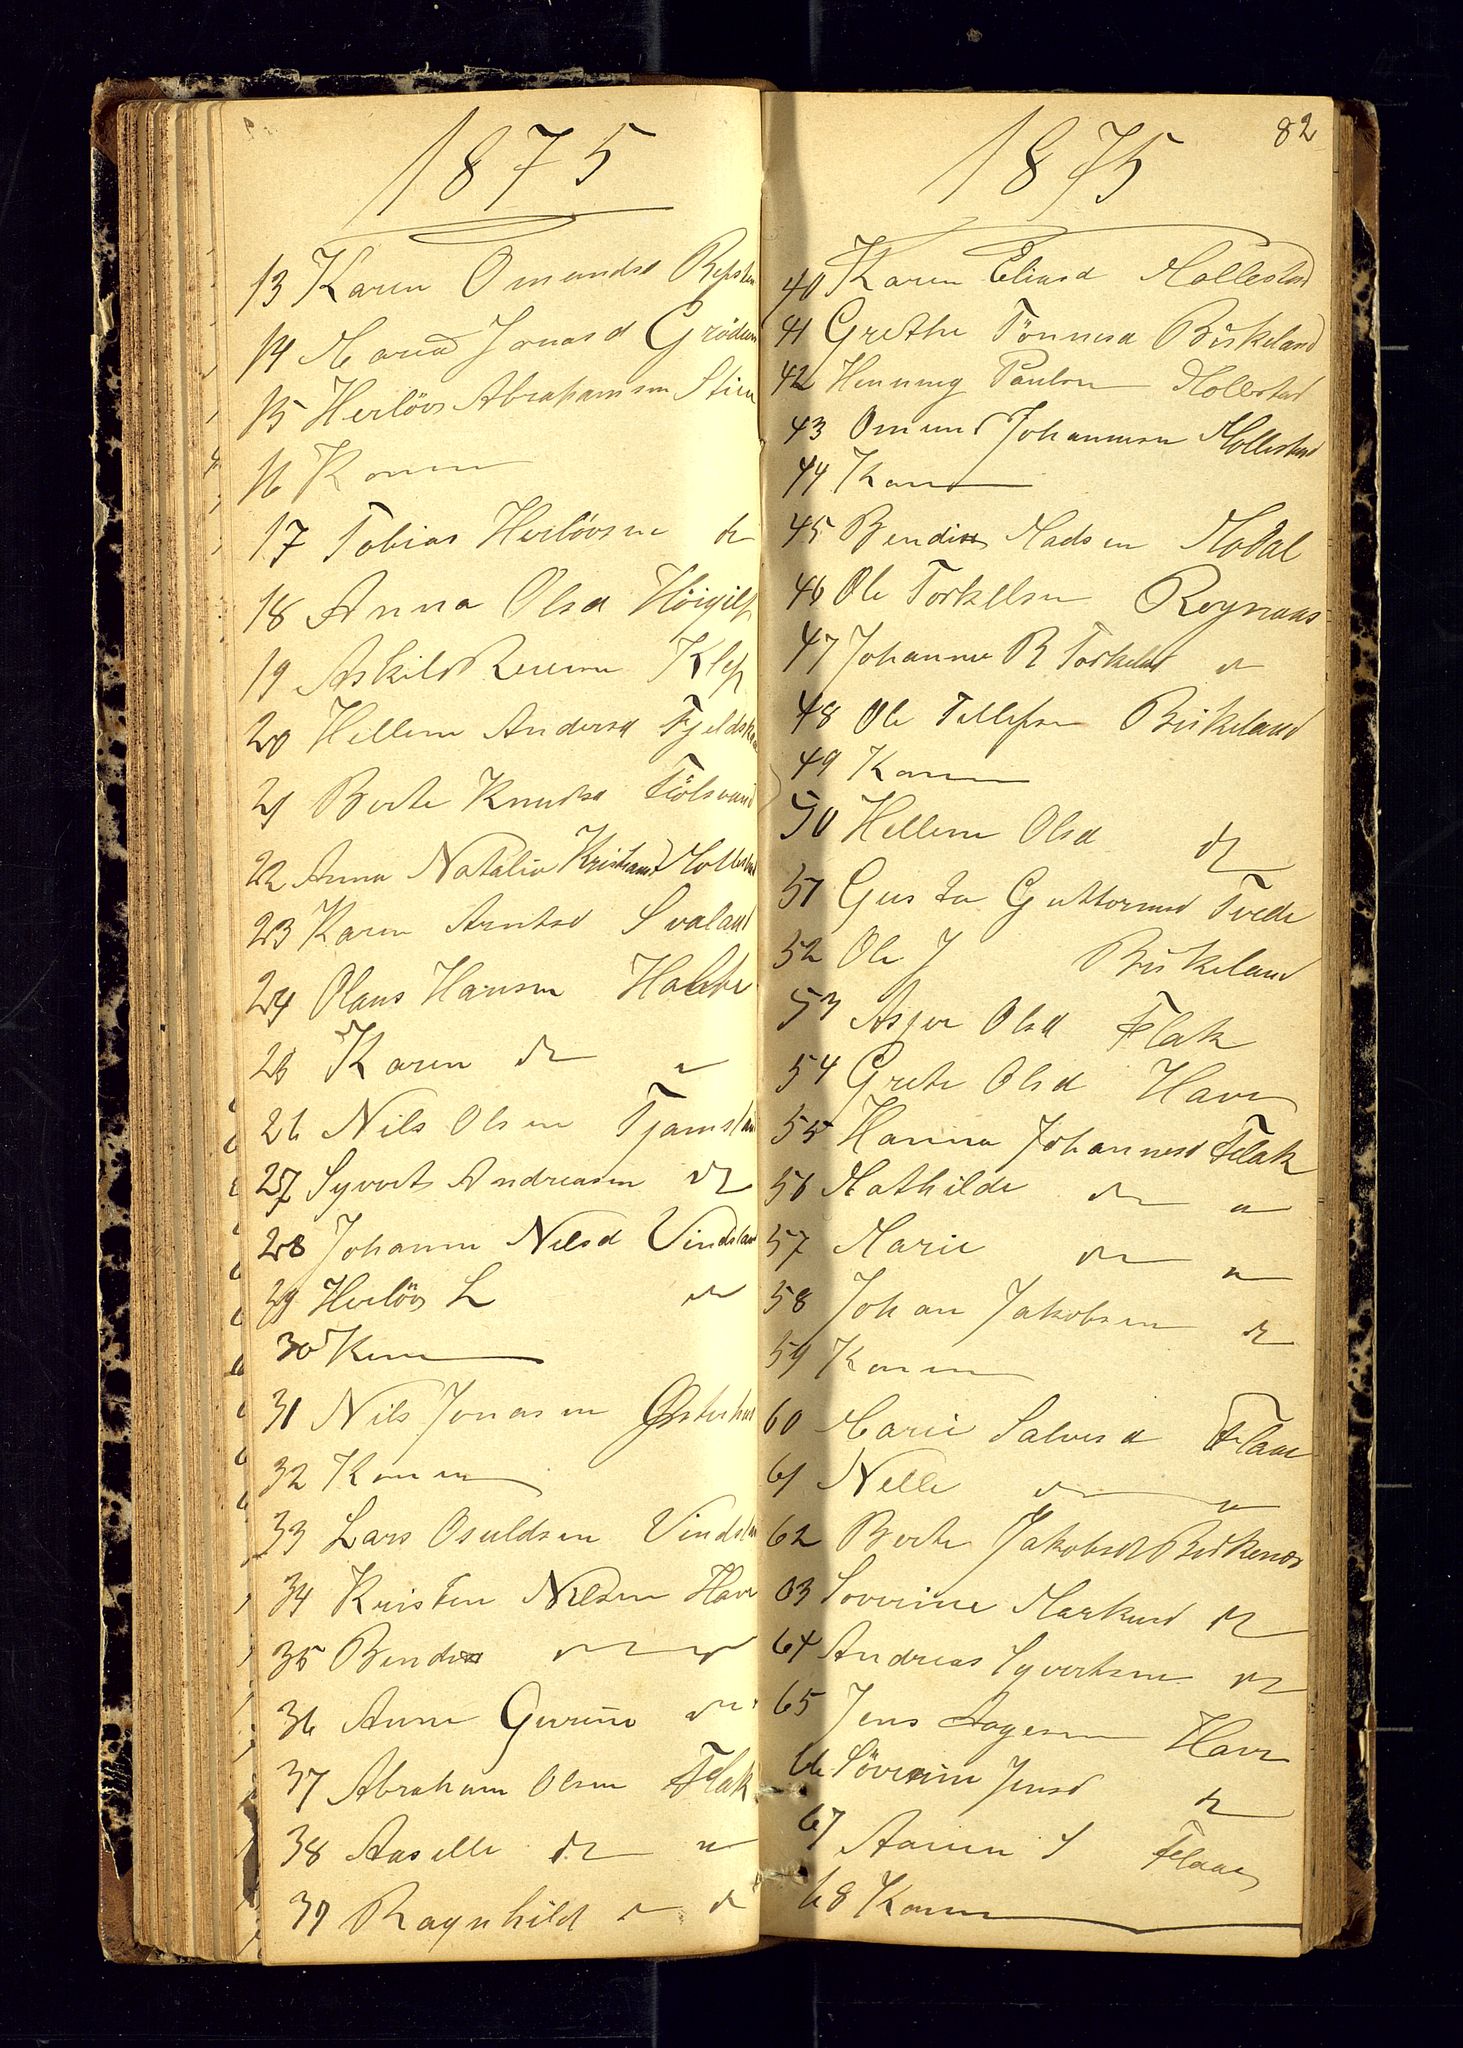 1875
13 Karen Omundsd Repsten
14 Maria Jonasd Grödum
15 Herlöv Abrahamsen Stien
16 Konen
17 Tobias Herlövsen do
18 Anna Olsd Höigilt
19 Askild Klep
20 Hellene Andersd Fjeldska
21 Berte Knudsd Tölsvand
22 Anna Natalia Kristiansd Mollestad
23 Karen Arntsd Svaland
24 Olaus Hansen
25 Karen do "
26 Nils Olsen Tjamsland
27 Syvert Andreasen do
28 Johanne Nilsd Vindsland
29 Herlöv L do
30 Konen
31 Nils Jonasen Østerhus
32 Konen
33 Lars Osuldsen Vindsland
34 Kristen Nilsen Have
35 Bendix do do
36 Anne Gurine do
37 Abraham Olsen Flak
38 Aaselle do "
39 Ragnhild " do
82
1875
40 Karen Eliasd Mollestad
41 Grethe Tönnesd Birkeland
42 Henning Paulsen Mollestad
43 Omund Johannesen Mollestad
44 Konen
45 Bendix Madsen Modal
46 Ole Torkelsen Rognaas
47 Johanne B Torkelsd do
48 Ole Tellefsen Birkeland
49 Konen
50 Hellene Olsd do
51 Gusta Guttormsd Tvede
52 Ole J Birkeland
53 Asjer Olsd Flak
54 Grete Olsd Have
55 Hanna Johannesd Flak
56 Mathilde do "
57 Marie do "
58 Johan Jakobsen do
59 Konen
60 Marie Salvesd Flaae
61 Nelle do "
62 Berte Jakobsd Birkenæs
63 Soverine Markusd do
64 Andreas Syvertsen do
65 Jens Aagesen Have
66 Söverine Jensd do
67 Aanen S Flaae
68 Konen